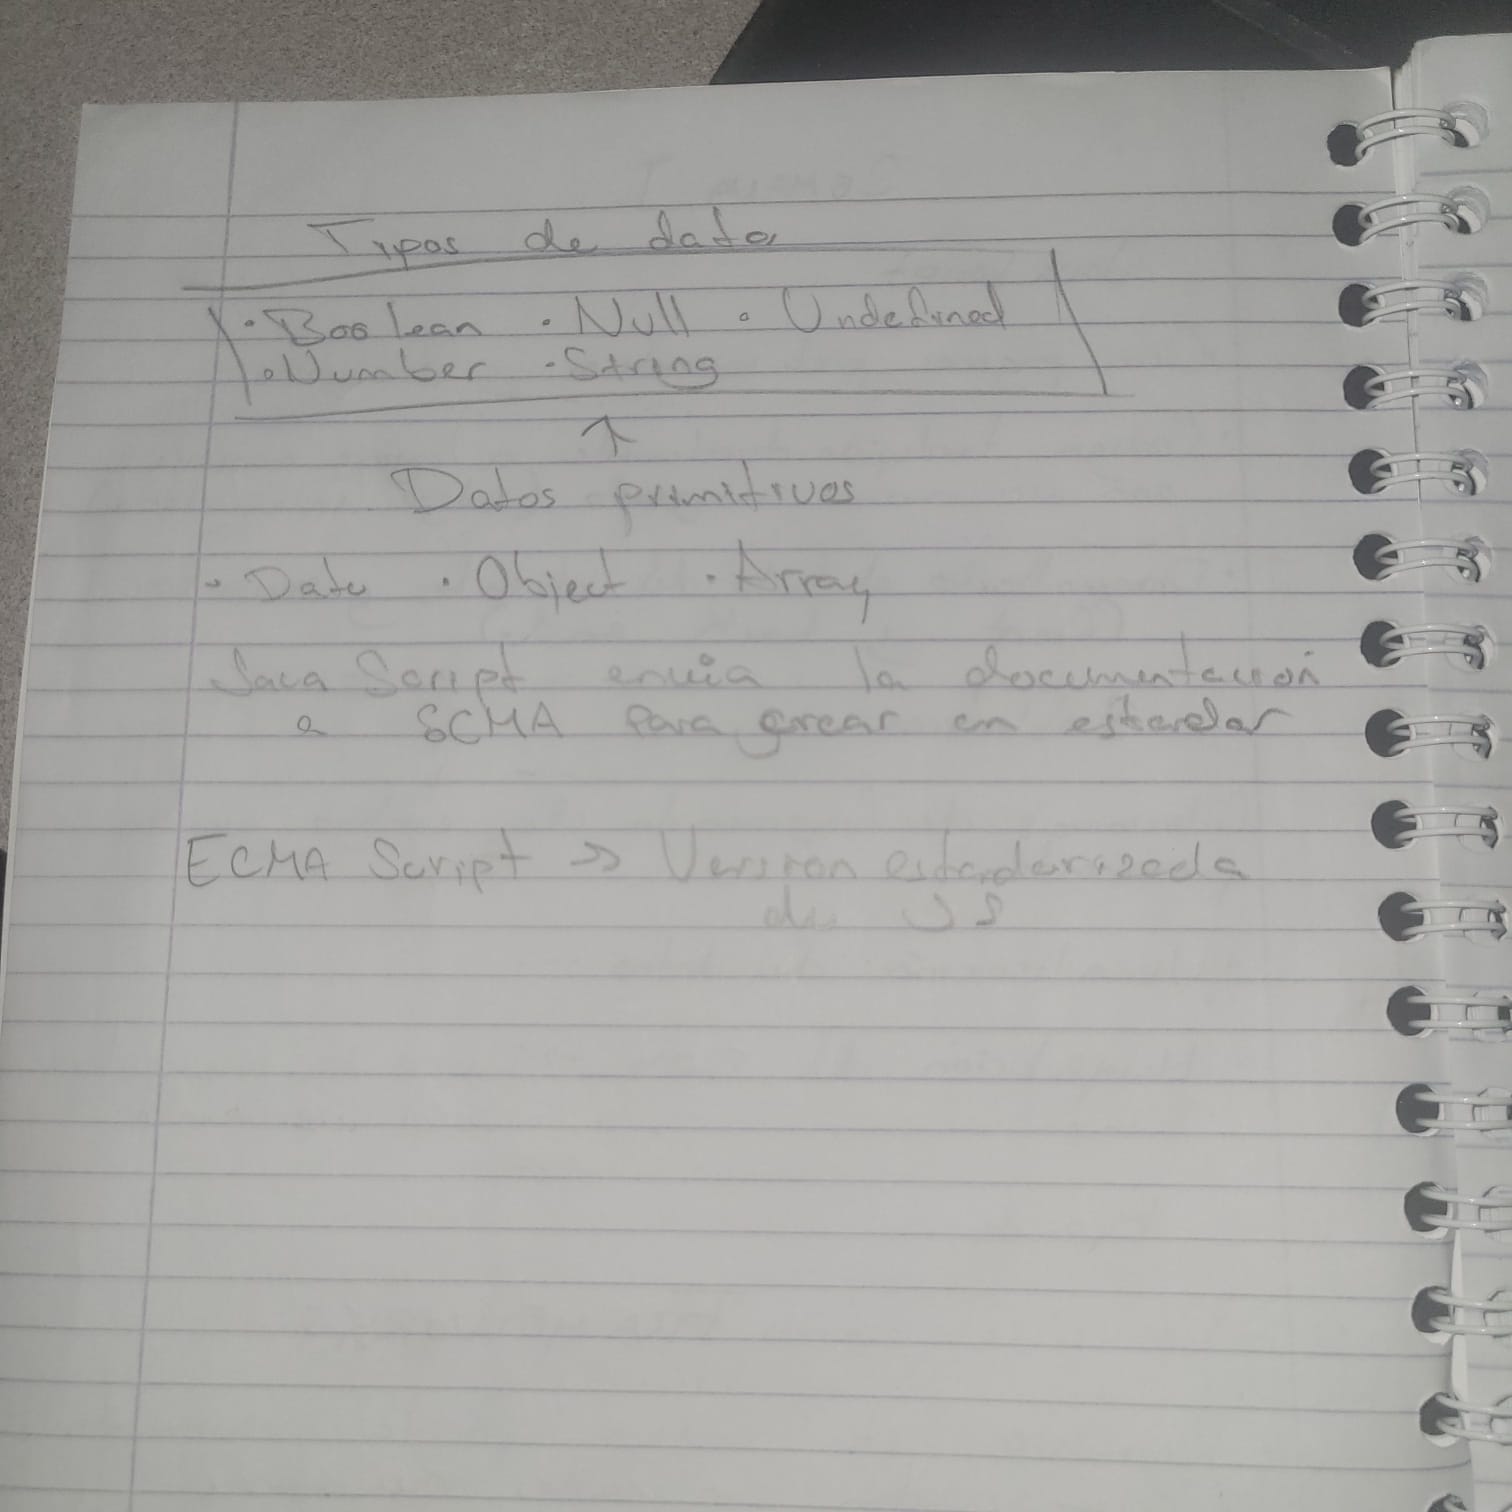 Tipos de dato
• Boolean • Null • Undefined
• Number • String
↑
Datos primitivos
• Date • Object • Array
Java Script envia la documentación
a ECMA para crear en estandar
ECMA Script => Version estandarizada
de JS